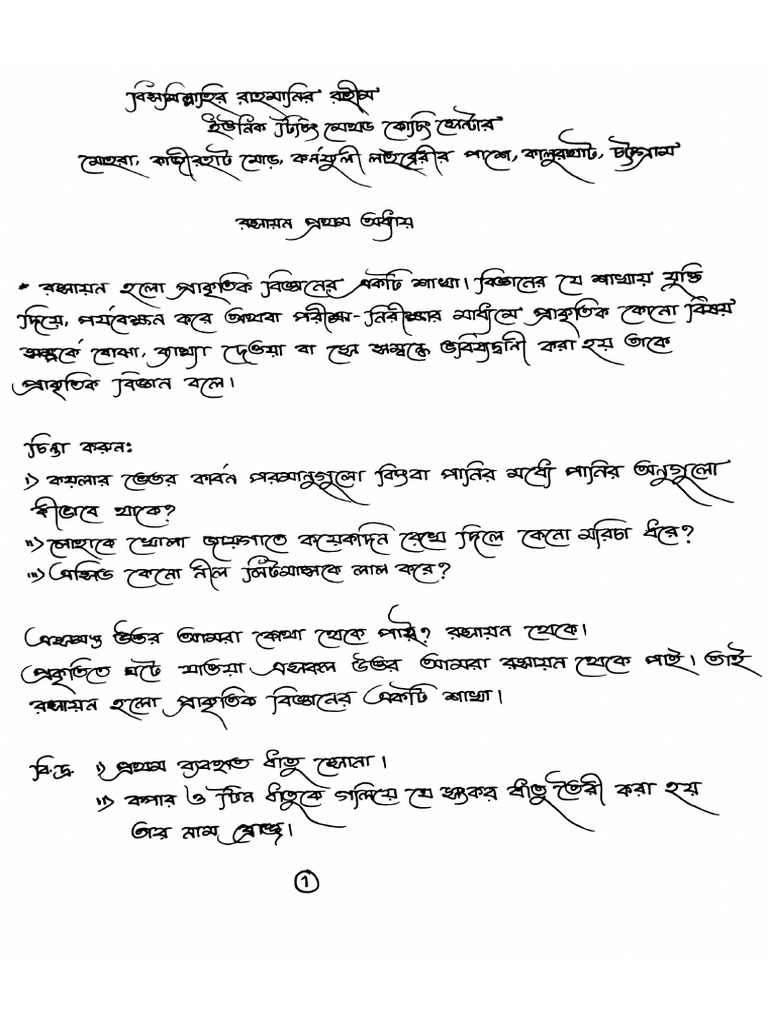 বিসমিল্লাহির রাহমানির রহীম
ইউনিক টিচিং মেথড কোচিং সেন্টার
মোহরা, কাজীরহাট মোড়, কর্নফুলী লাইব্রেরীর পাশে, কালুরঘাট, চট্টগ্রাম
রসায়ন প্রথম অধ্যায়
* রসায়ন হলো প্রাকৃতিক বিজ্ঞানের একটি শাখা। বিজ্ঞানের যে শাখায় যুক্তি
দিয়ে, পর্যবেক্ষন করে অথবা পরীক্ষা-নিরীক্ষার মাধ্যমে প্রাকৃতিক কোনো বিষয়
সম্পর্কে বোঝা, ব্যাখ্যা দেওয়া বা সে সম্বন্ধে ভবিষ্যদ্বানী করা হয় তাকে
প্রাকৃতিক বিজ্ঞান বলে।
চিন্তা করুন:
i) কয়লার ভেতর কার্বন পরমানুগুলো কিংবা পানির মধ্যে পানির অনুগুলো
কীভাবে থাকে?
ii) লোহাকে খোলা জায়গাতে কয়েকদিন রেখে দিলে কেনো মরিচা ধরে?
iii) এসিড কেনো নীল লিটমাসকে লাল করে?
এসমস্ত উত্তর আমরা কোথা থেকে পাই? রসায়ন থেকে।
প্রকৃতিতে ঘটে যাওয়া এসকল উত্তর আমরা রসায়ন থেকে পাই। তাই
রসায়ন হলো প্রাকৃতিক বিজ্ঞানের একটি শাখা।
বি.দ্র. i) প্রথম ব্যবহৃত ধাতু সোনা।
ii) কপার ও টিন ধাতুকে গলিয়ে যে সংকর ধাতু তৈরী করা হয়
তার নাম ব্রোঞ্জ।
1